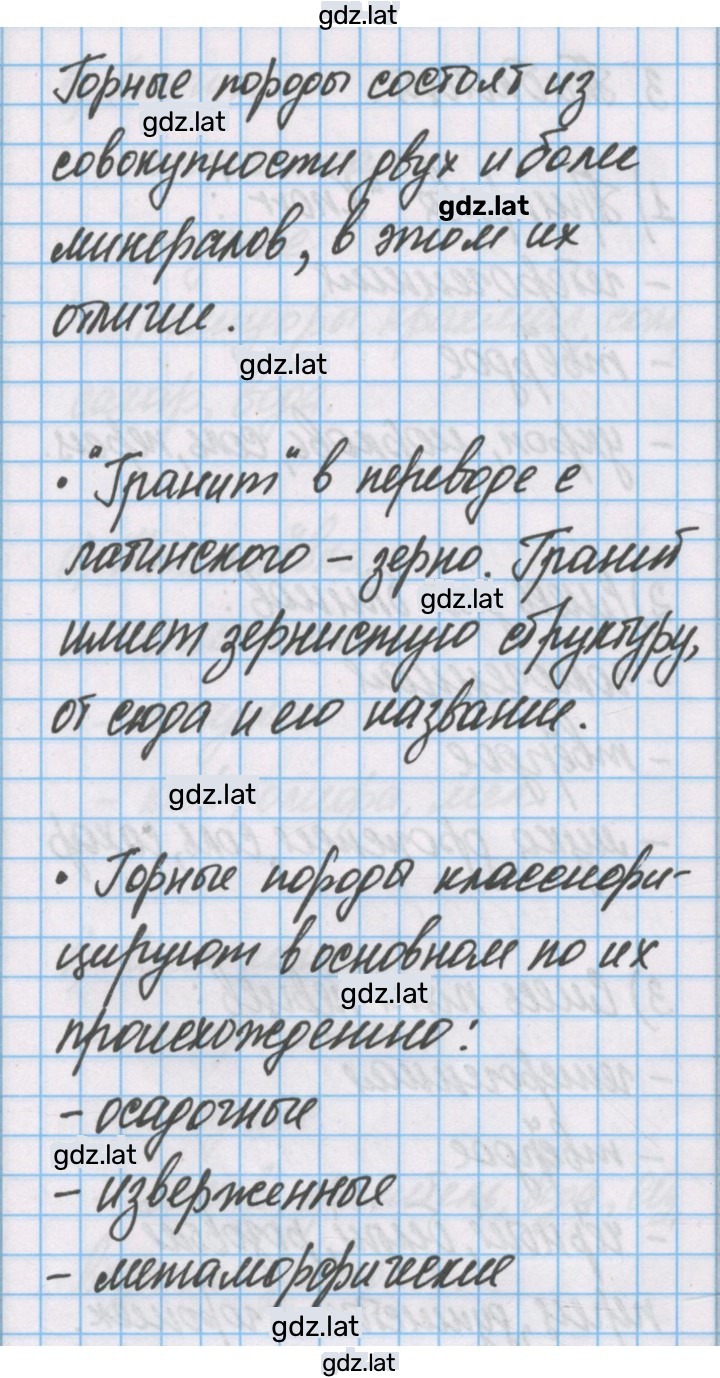 gdz.lat
Горные породы состоят из
gdz.lat
совокупности двух и более
gdz.lat
минералов, в этом их
отличие.
gdz.lat
• "Гранит" в переводе с
латинского – зерно. Гранит
gdz.lat
имеет зернистую структуру,
от сюда и его название.
gdz.lat
• Горные породы классифи-
цируют в основном по их
gdz.lat
происхождению:
– осадочные
gdz.lat
– изверженные
– метаморфические
gdz.lat
gdz.lat